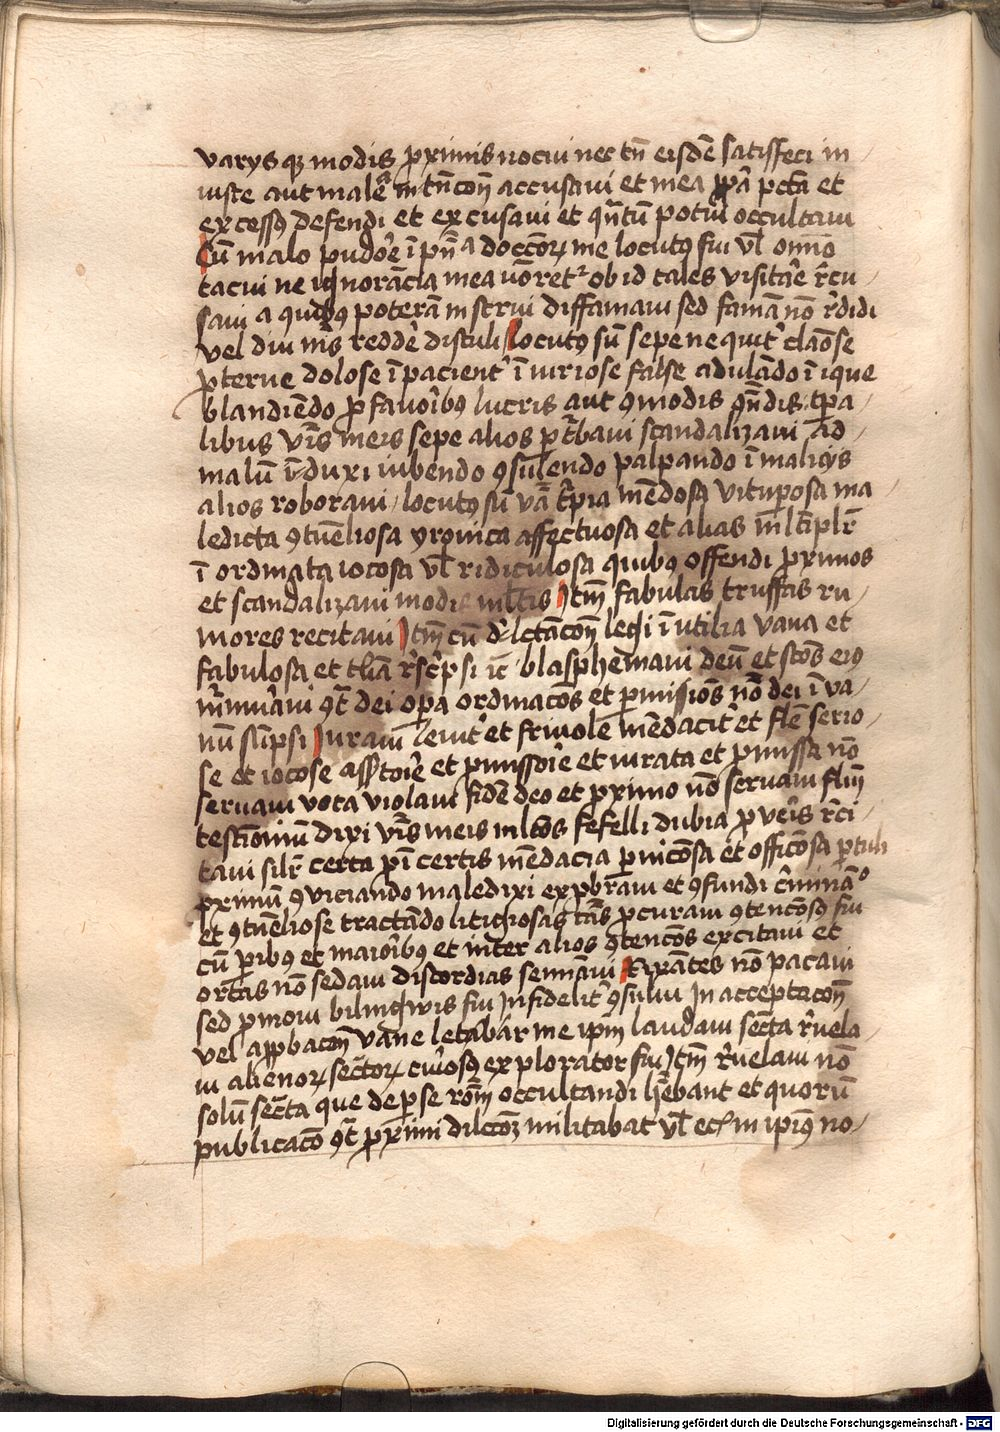 varys qz modis pximis nocui nec tn̄ eisdē satisfeci in
iuste aut male in tn̄con̄ accusaui et mea ppā pctā et
excessꝰ defendi et excusaui et qn̄tū potui occultaui
Cū malo pudore ī pn̄a doccōrꝫ me locutꝰ fui vl̄ omīo
tacui ne ignorācia mea ob id tales visitāe r̄cu
saui a quibꝰ poterā instrui diffamaui sed famā nō r̄didi
vel diu nīs reddē distuli locutꝰ sū sepe nequit claōse
pterue dolose īpacient īiuriose false adulādo īique
blandiēdo p fauoribꝰ lucris aut ꝯmodis tpa
libus v̄is meis sepe alios ptbaui scandalizaui ad
malū īduxi iubendo ꝯsulendo palpando ī malicijs
alios roboraui locutꝰ sū vā t͛pia mēdosa vituposa ma
ledicta ꝯtuēliosa yronica affectuosa et alias ml̄tiplr̄
ī ordinata iocosa vl̄ ridiculosa quibꝰ offendi pximos
et scandalizaui modis ml̄tis Itm̄ fabulas truffas ru
mores recitaui Itm̄ cū dl̄ctacōn legi īutilia vana et
fabulosa et r̄sc̄psi blasphemaui deū et scōs eiꝰ
m̄muāui ꝯt̄ dei opa ordinacōs et pmissiōs nō dei ī va
nū sūpsi Iuraui leuit et friuole mēdacit et serio
se et iocose assertorie et pmissorie et iurata et pmissa nō
seruaui vota violaui fidē deo et pximo nō seruaui flm̄
testiōniū dixi v̄is meis ml̄tos fefelli dubia p veris r̄ci
taui silr̄ certa p īcertis mēdacia pnicōsa et officiōsa ptuli
pximū ꝯuiciando maledixi expbraui et ꝯfundi cīminādo
et ꝯtuēliose tractādo litigiosas cās pcuraui ꝯtencōsꝰ fui
cū paribꝰ et maioribꝰ et inter alios ꝯtencōs excitaui et
ortas nō sedaui discordias semināui Rixātes nō pacaui
sed pmoui bilingwis fui Infidelit ꝯsului In acceptacōn̄
vel appbacōn̄ vane letabar me ipm laudaui secta r̄uela
ui alienorꝫ sectorꝫ c͛iosꝰ explorator fui Itm̄ r̄uelaui nō
solū sec̄ta que de pse rōm̄ occultandi hēbant et quorū
publicacō ꝯt̄ pximi dilccōꝫ militabat vl̄ eciā in ipiꝰ no
Digitalisierung gefördert durch die Deutsche Forschungsgemeinschaft - DFG